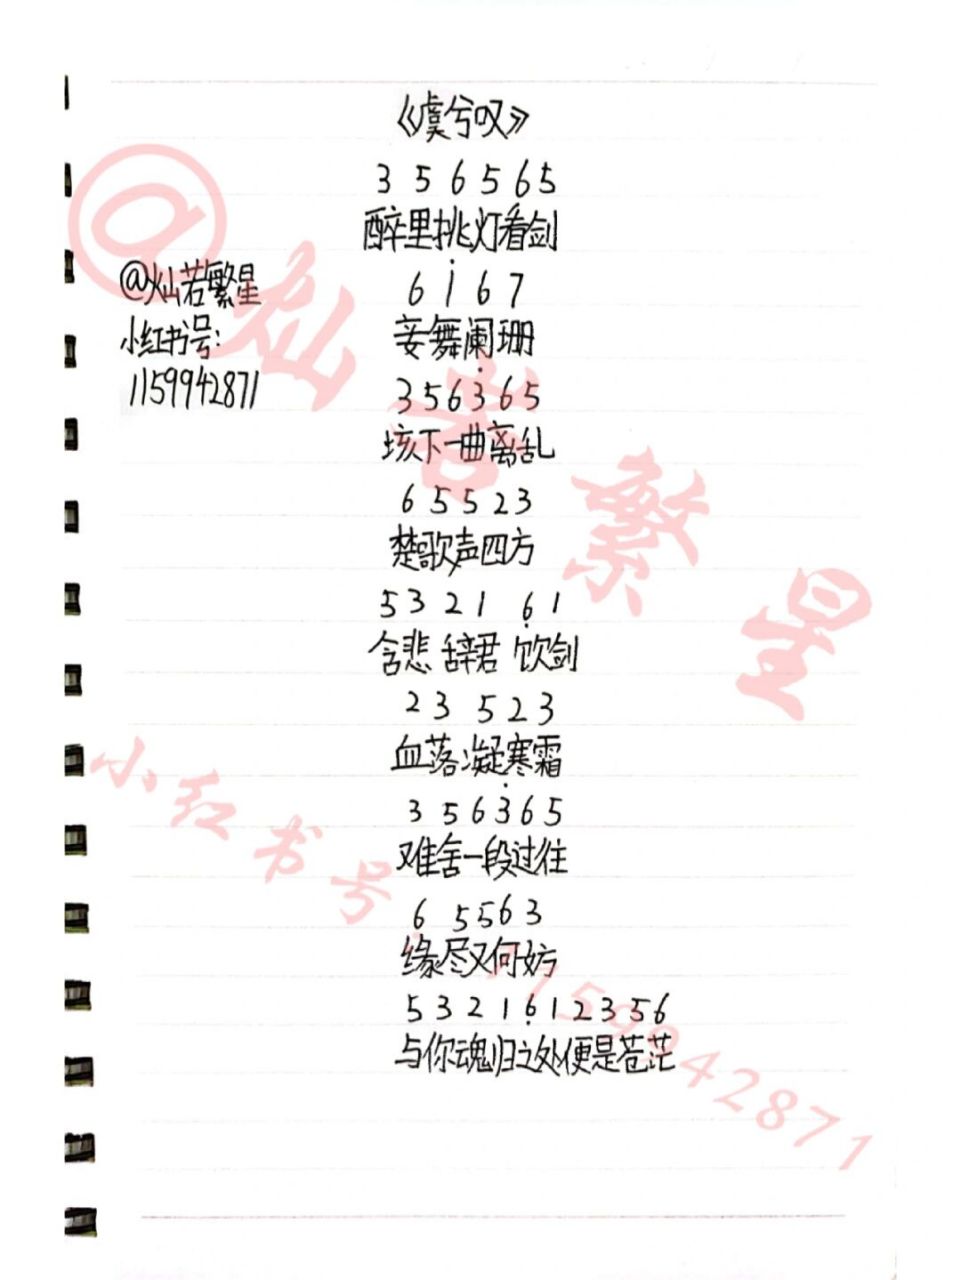 《虞兮叹》
3 5 6 5 6 5
醉里挑灯看剑
6 i 6 7
妾舞阑珊
3 5 6 3̇ 6 5
垓下一曲离乱
6 5 5 2 3
楚歌声四方
5 3 2 1 6̣ 1
含悲 辞君 饮剑
2 3 5 2 3
血落凝寒霜
3 5 6 3̇ 6 5
难舍一段过往
6 5 5 6 3
缘尽又何妨
5 3 2 1 6̣ 1 2 3 5 6
与你魂归之处便是苍茫
@灿若繁星
小红书号:
1159942871
@灿若繁星
小红书号:1159942871